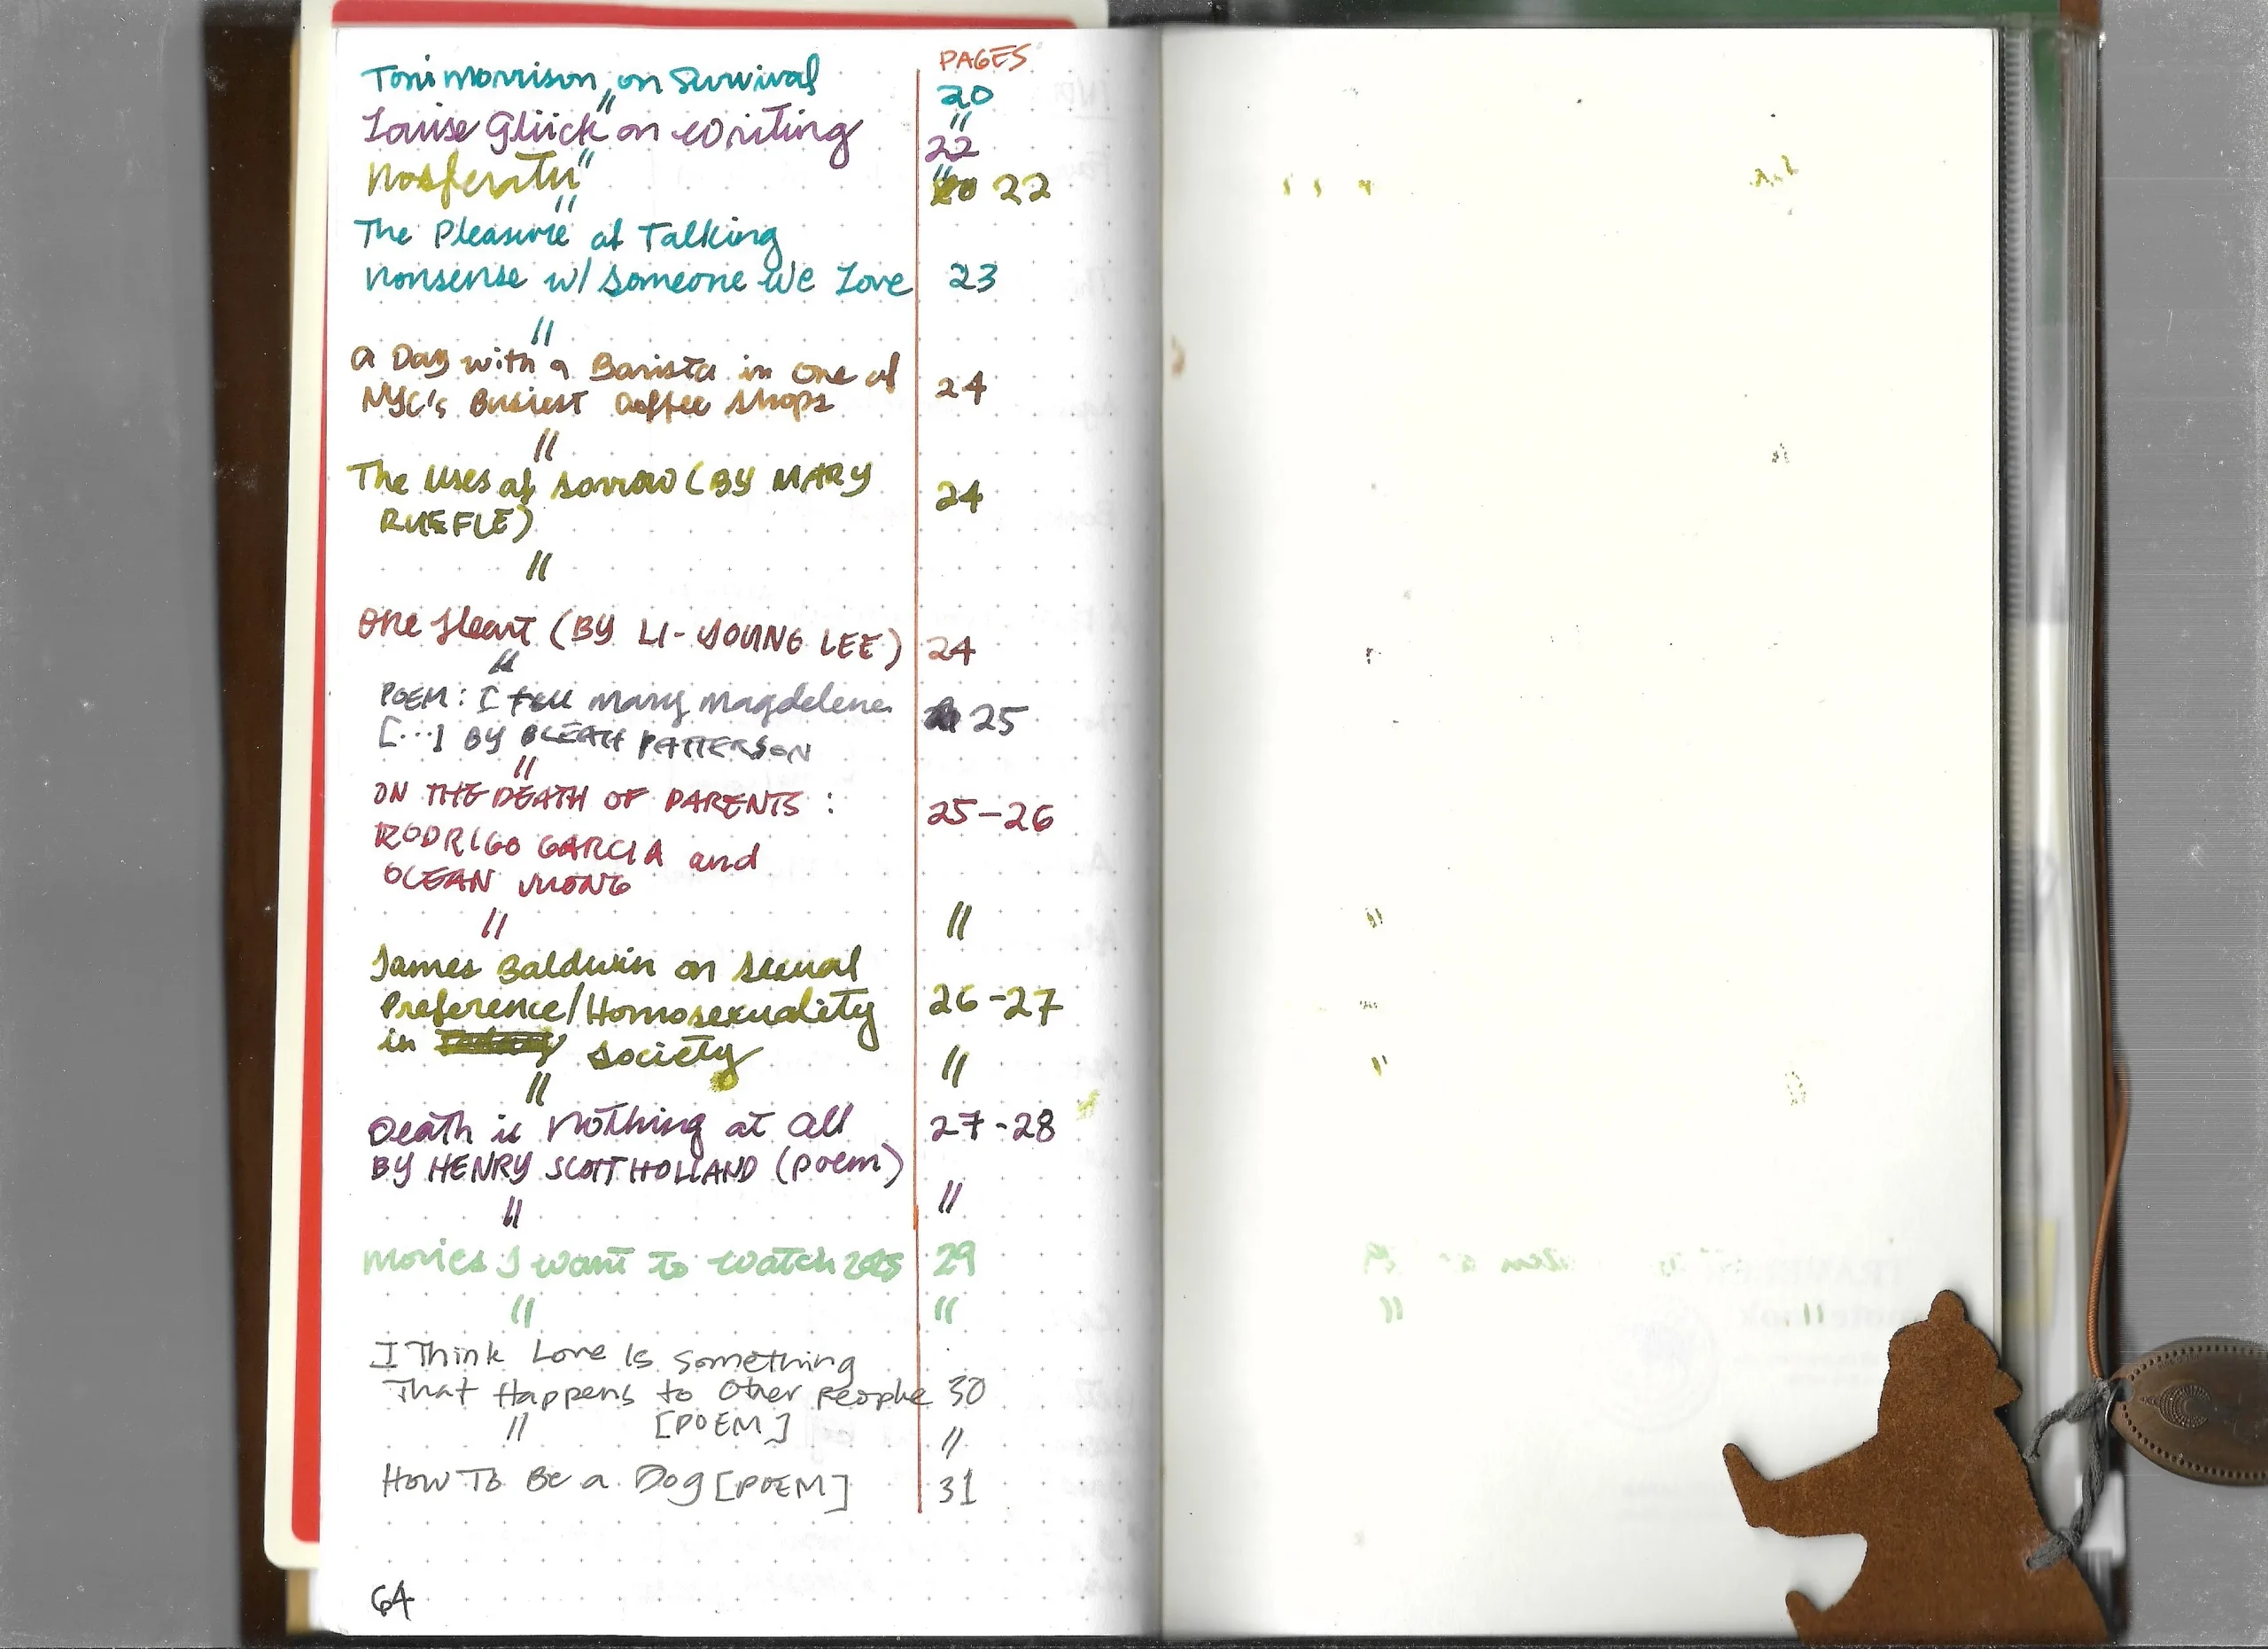 PAGES
Toni Morrison on Survival 20
" "
Louise Glück on Writing 22
" "
Nosferatu 22
"
The Pleasure of Talking
Nonsense w/ Someone We Love 23
"
A Day with a Barista in One of
NYC's Busiest Coffee Shops 24
"
The Uses of Sorrow (BY MARY
RUEFLE) 24
"
One Heart (BY LI-YOUNG LEE) 24
"
POEM: I tell Mary Magdelene 25
[...] BY BLEAH PATTERSON
"
ON THE DEATH OF PARENTS: 25-26
RODRIGO GARCIA and
OCEAN VUONG
" "
James Baldwin on Sexual
Preference/Homosexuality 26-27
in Society
" "
Death is Nothing at All 27-28
BY HENRY SCOTT HOLLAND (poem)
" "
Movies I want to watch 2025 29
" "
I Think Love Is Something
That Happens to Other People 30
" [POEM] "
HOW TO Be a Dog [POEM] 31
64